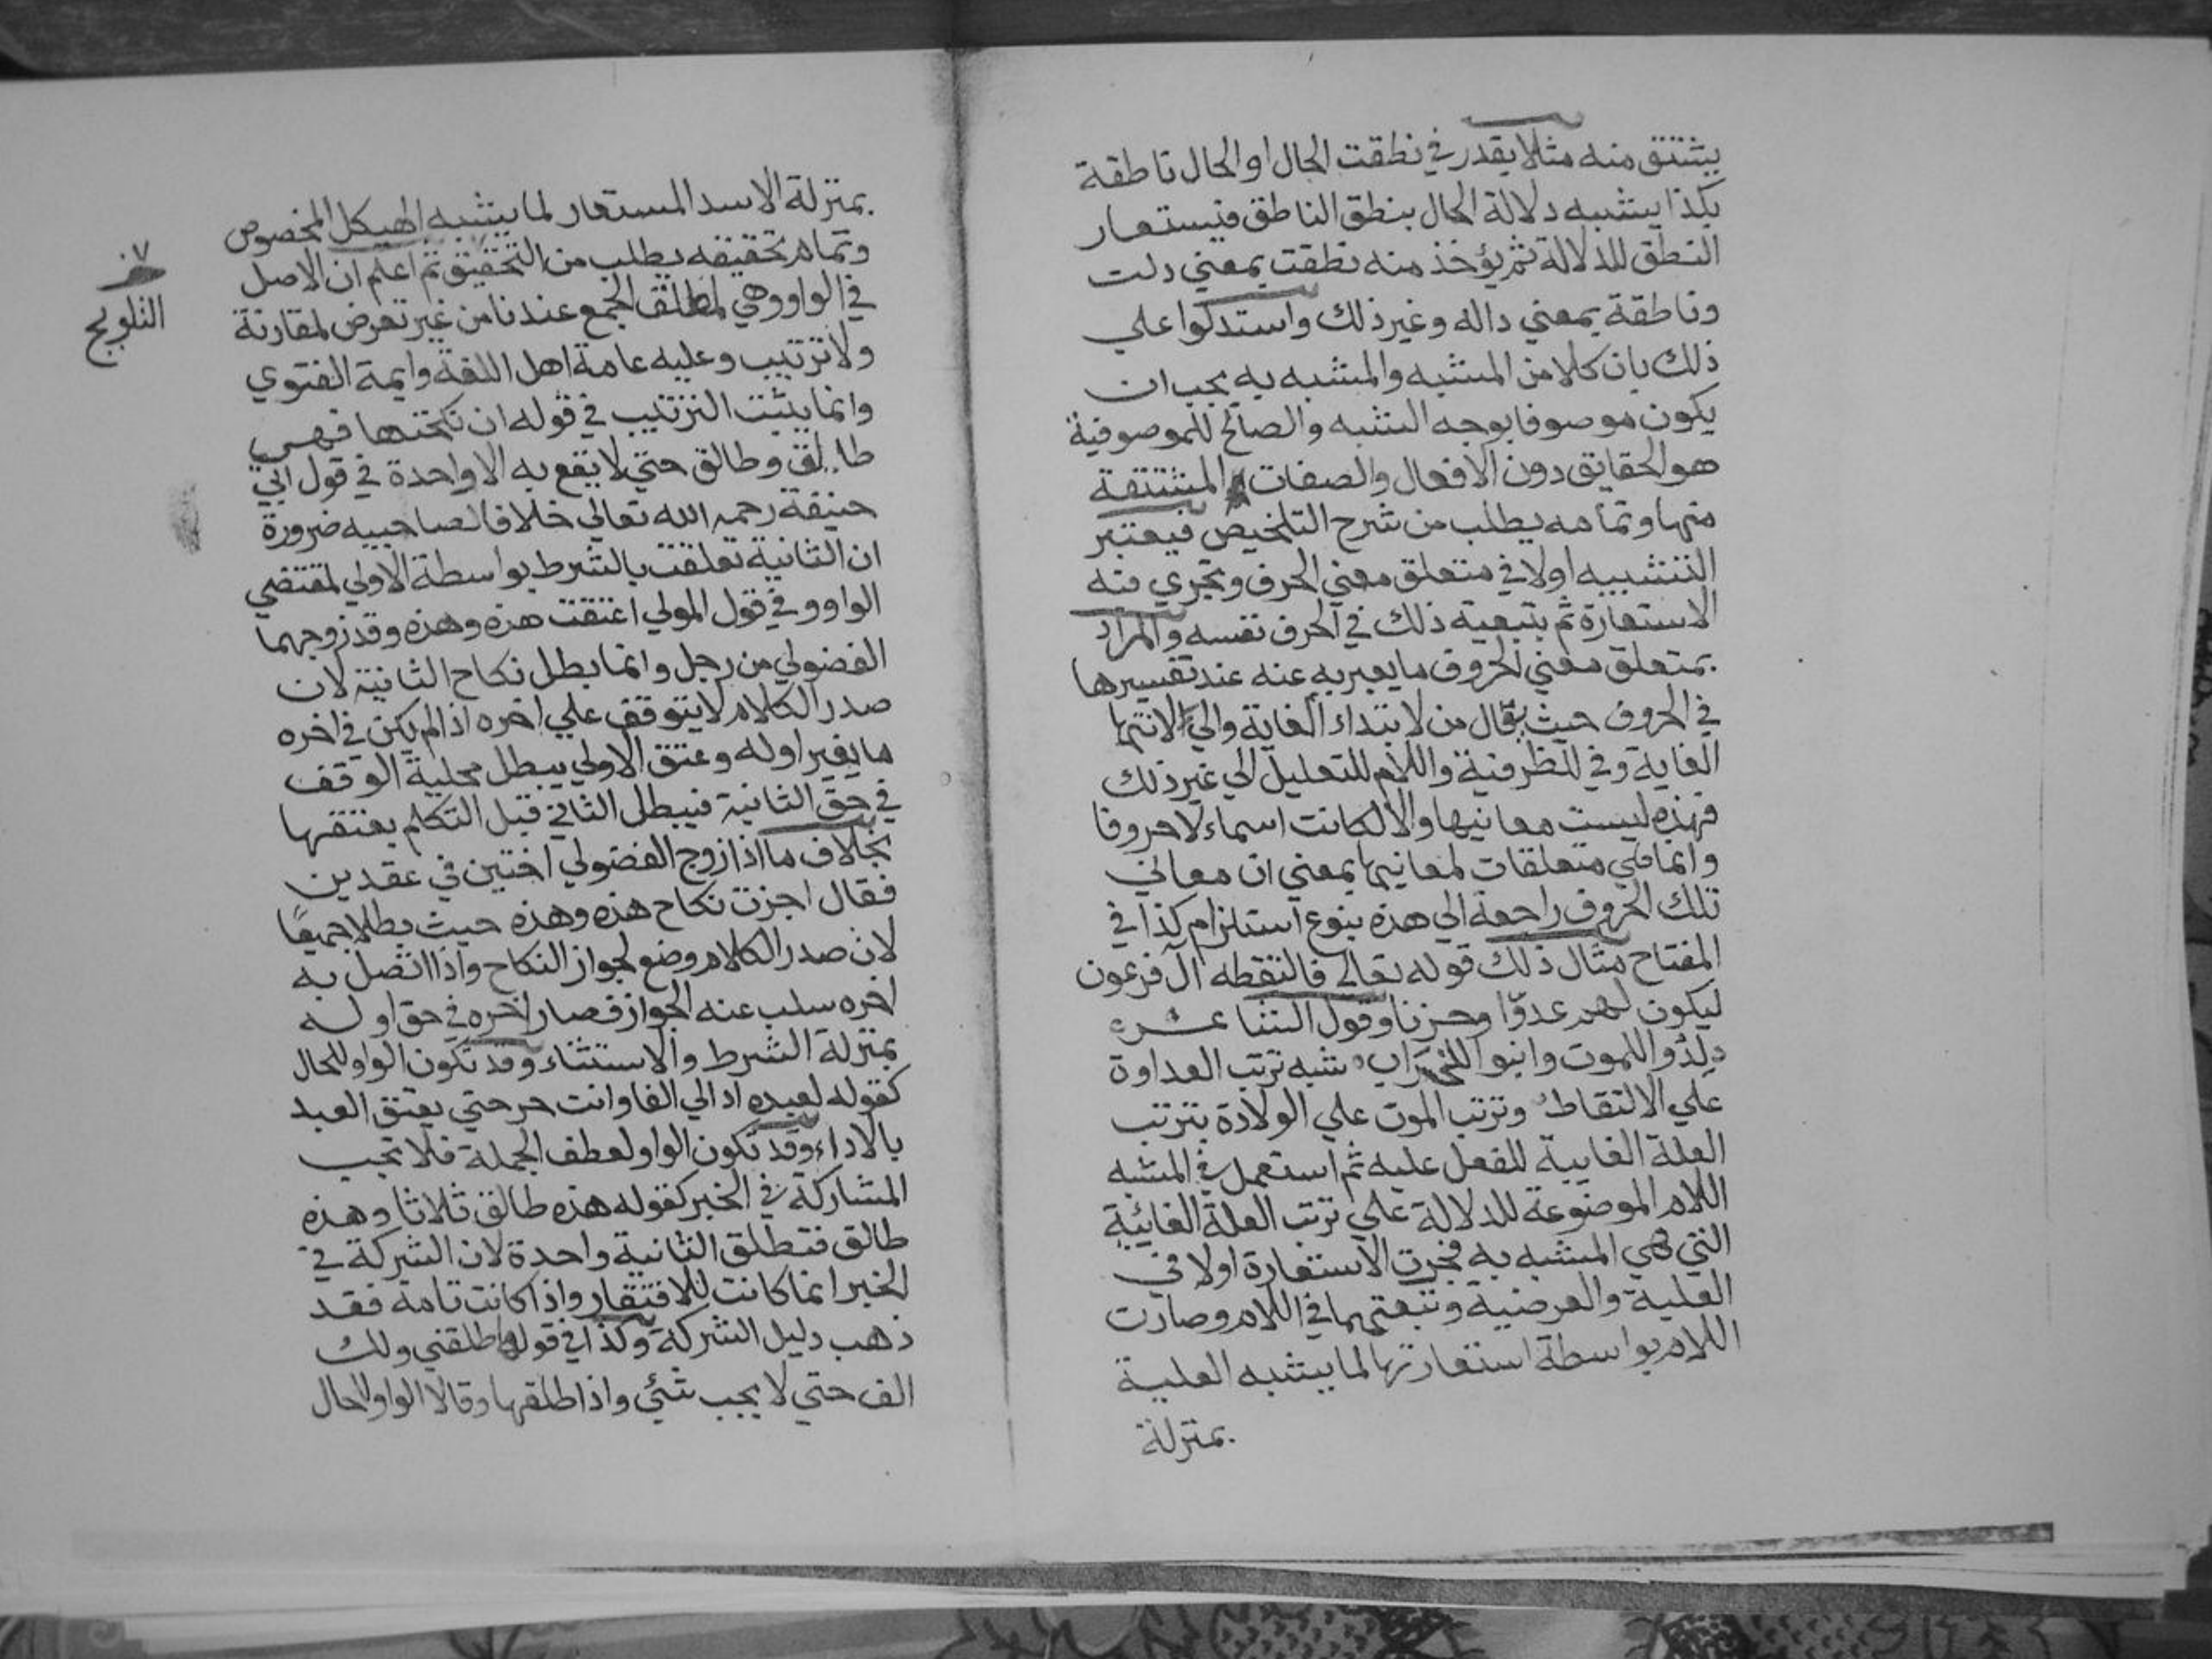 يشتق منه مثلا يقدر في نطقت الحال او الحال ناطقة
بكذا يشبه دلالة الحال بنطق الناطق فيستعار
النطق للدلالة ثم يؤخذ منه نطقت بمعني دلت
وناطقة بمعني داله وغير ذلك واستدلوا علي
ذلك بان كلا من المشبه والمشبه به يجب ان
يكون موصوفا بوجه الشبه والصالح للموصوفية
هو الحقايق دون الافعال والصفات المشتقة
منها وتمامه يطلب من شرح التلخيص فيعتبر
التشبيه اولا في متعلق معني الحرف وتجري فيه
الاستعارة ثم بتبعية ذلك في الحرف نفسه والمراد
بمتعلق معني الحروف ما يعبر به عنه عند تفسيرها
في الحروف حيث يقال من لابتداء الغاية والي لانتها
الغاية وفي للظرفية واللام للتعليل الي غير ذلك
فهذه ليست معانيها والا لكانت اسماء لا حروفا
وانما هي متعلقات لمعانيها بمعني ان معاني
تلك الحروف راجعة الي هذه بنوع استلزام كذا في
المفتاح مثال ذلك قوله تعالي فالتقطه آل فرعون
ليكون لهم عدوّا وحزنا وقول الشاعر
لدو اللموت وابنوا للخراب شبه ترتب العداوة
علي الالتقاط وترتب الموت علي الولادة بترتب
العلة الغايية للفعل عليه ثم استعمل في المشبه
اللام الموضوعة للدلالة علي ترتب العلة الغائية
التي هي المشبه به فجرت الاستعارة اولا في
العلية والعرضية وتبعتهما في اللام وصارت
اللام بواسطة استعارتها لما يشبه العلية
بمنزلة
بمنزلة الاسد المستعار لما يشبه الهيكل المخصوص
وتمام تحقيقه يطلب من التحقيق ثم اعلم ان الاصل
في الواو وهي لمطلق الجمع عندنا من غير تعرض لمقارنة
ولا ترتيب وعليه عامة اهل اللغة وايمة الفتوي
وانما يثبت الترتيب في قوله ان نكحتها فهي
طالق وطالق حتي لا يقع به الا واحدة في قول ابي
حنيفة رحمه الله تعالي خلافا لصاحبيه ضرورة
ان الثانية تعلقت بالشرط بواسطة الاولي لمقتضي
الواو وفي قول المولي اعتقت هذه وهذه وقد زوجهما
الفضولي من رجل وانما بطل نكاح الثانية لان
صدر الكلام لا يتوقف علي اخره اذا لم يكن في اخره
ما يغير اوله وعتق الاولي يبطل محلية الوقف
في حق الثانية فيبطل الثاني قبل التكلم بعتقها
بخلاف ما اذا زوج الفضولي اختين في عقدين
فقال اجزت نكاح هذه وهذه حيث بطلا جميعًا
لان صدر الكلام وضع لجواز النكاح واذا اتصل به
اخره سلب عنه الجواز فصار اخره في حق اوله
بمنزلة الشرط والاستثناء وقد تكون الواو للحال
كقوله لعبده اد الي الفا وانت حر حتي يعتق العبد
بالاداء وقد تكون الواو لعطف الجملة فلا تجب
المشاركة في الخبر كقوله هذه طالق ثلاثا وهذه
طالق فتطلق الثانية واحدة لان الشركة في
الخبر انما كانت للافتقار واذا كانت تامة فقد
ذهب دليل الشركة وكذا في قولها طلقني ولك
الف حتي لا يجب شئي واذا طلقها وقالا الواو للحال
٠٧
التلويح